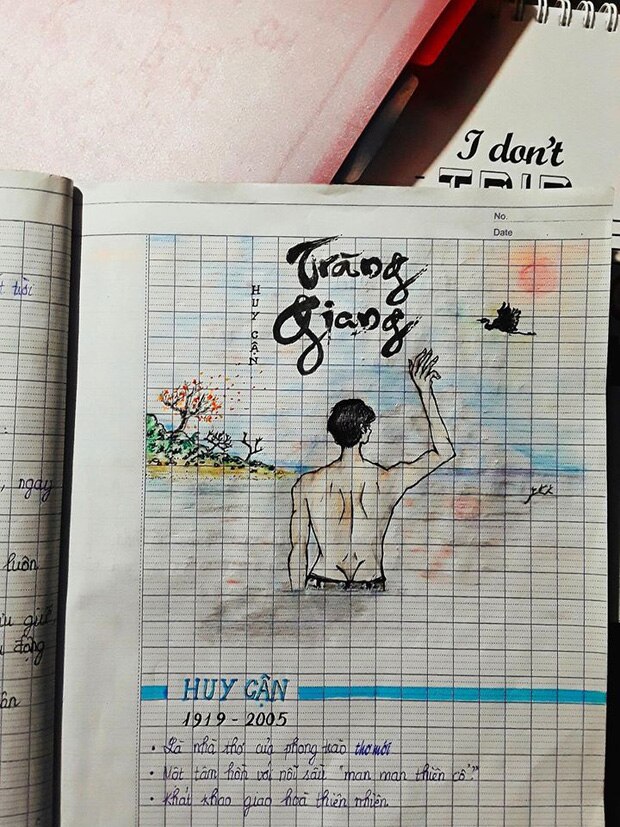 I don't
TRIP
No.
Date
Tràng
Giang
HUY CẬN
tuổi
, ngày
luôn
giữ
động
HUY CẬN
1919 - 2005
• Là nhà thơ của phong trào thơ mới
• Một tâm hồn với nỗi sầu "man man thiên cổ"
• Khát khao giao hoà thiên nhiên